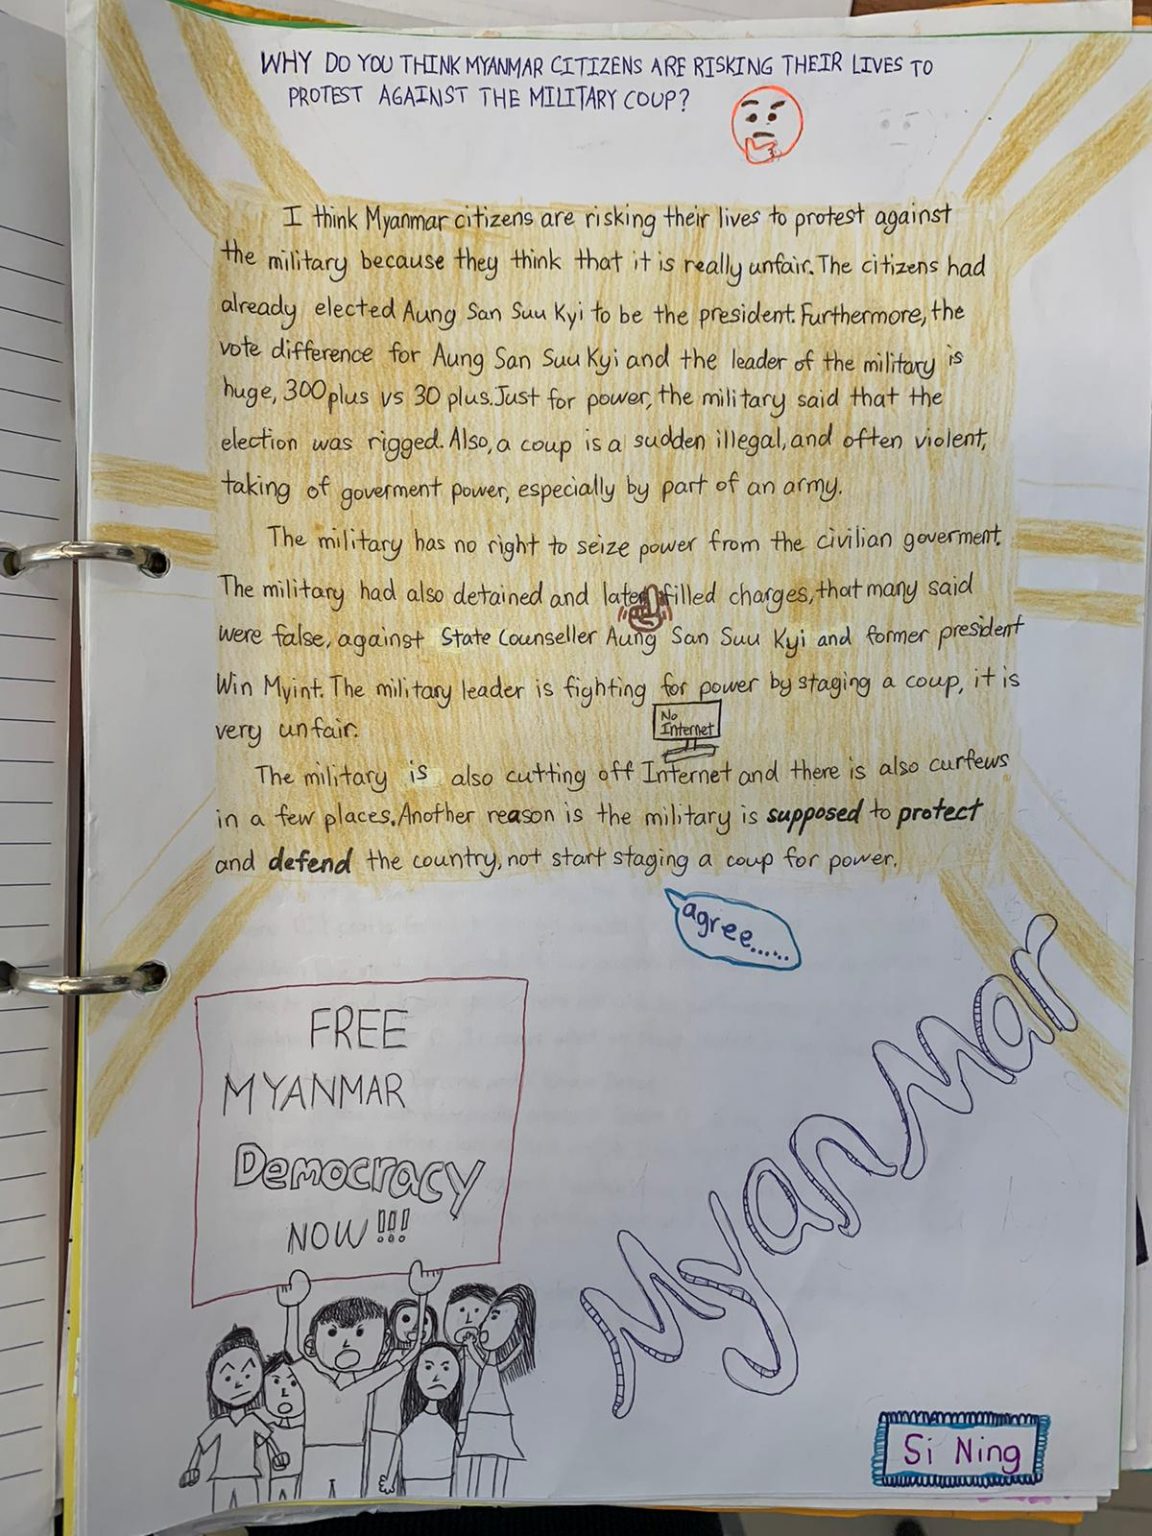 WHY DO YOU THINK MYANMAR CITIZENS ARE RISKING THEIR LIVES TO
PROTEST AGAINST THE MILITARY COUP?
I think Myanmar citizens are risking their lives to protest against
the military because they think that it is really unfair. The citizens had
already elected Aung San Suu Kyi to be the president. Furthermore, the
vote difference for Aung San Suu Kyi and the leader of the military is
huge, 300 plus vs 30 plus. Just for power, the military said that the
election was rigged. Also, a coup is a sudden illegal, and often violent,
taking of goverment power, especially by part of an army.
The military has no right to seize power from the civilian goverment.
The military had also detained and later filled charges, that many said
were false, against State Counseller Aung San Suu Kyi and former president
Win Myint. The military leader is fighting for power by staging a coup, it is
very unfair.
No
Internet
The military is also cutting off Internet and there is also curfews
in a few places. Another reason is the military is supposed to protect
and defend the country, not start staging a coup for power.
agree......
FREE
MYANMAR
Democracy
NOW!!!
Myanmar
Si Ning